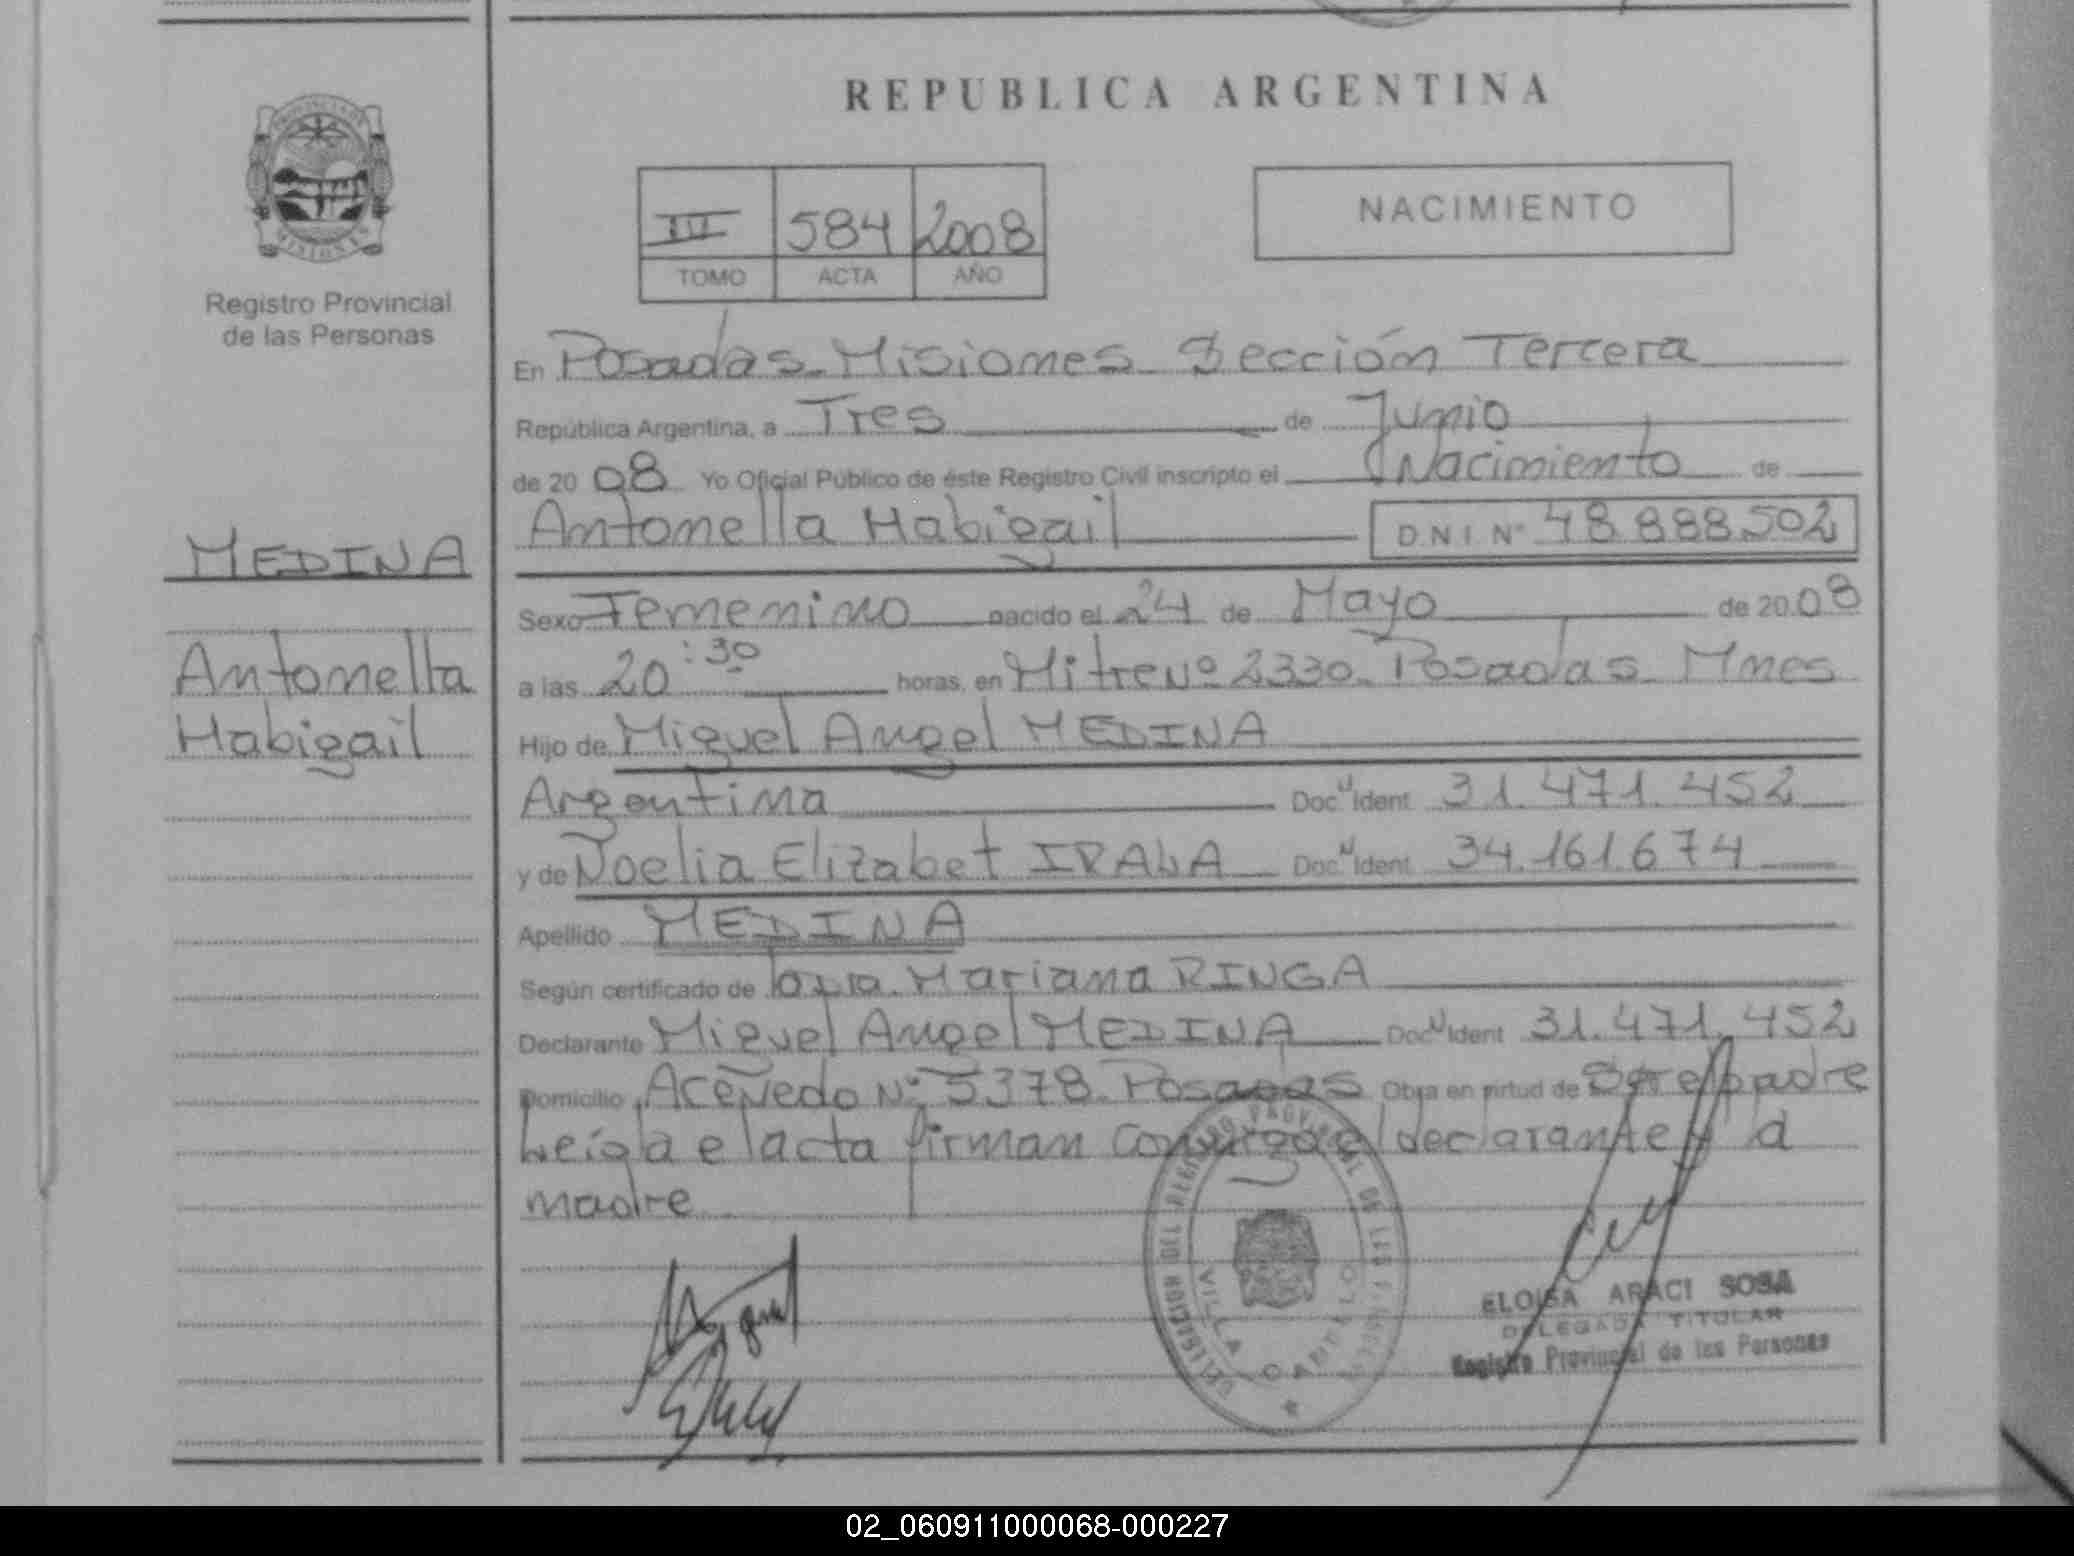 REPUBLICA ARGENTINA
PROVINCIA DE
MISIONES
Registro Provincial
de las Personas
III 584 2008
TOMO ACTA AÑO
NACIMIENTO
En Posadas Misiones Sección Tercera
República Argentina, a Tres de Junio
de 2008 Yo Oficial Público de éste Registro Civil inscripto el Nacimiento de
Antonella Habigail D.N.I. Nº 48.888.502
MEDINA
Antonella
Habigail
Sexo Femenino nacido el 24 de Mayo de 2008
a las 20:30 horas, en Mitre Nº 2330 Posadas Mnes
Hijo de Miguel Angel MEDINA
Argentina Doc. Ident 31.471.452
y de Noelia Elizabet IRALA Doc. Ident 34.161.674
Apellido MEDINA
Según certificado de Mariana RINGA
Declarante Miguel Angel MEDINA Doc. Ident 31.471.452
Domicilio Acevedo Nº 5378 Posadas Obra en virtud de Ser el padre
Leída el acta firman conmigo el declarante y la
madre
Miguel
DELEGACION DEL REGISTRO PROVINCIAL DE LAS PERSONAS
VILLA CABELLO
ELOISA ARACI SOSA
DELEGADA TITULAR
Registro Provincial de las Personas
02_060911000068-000227